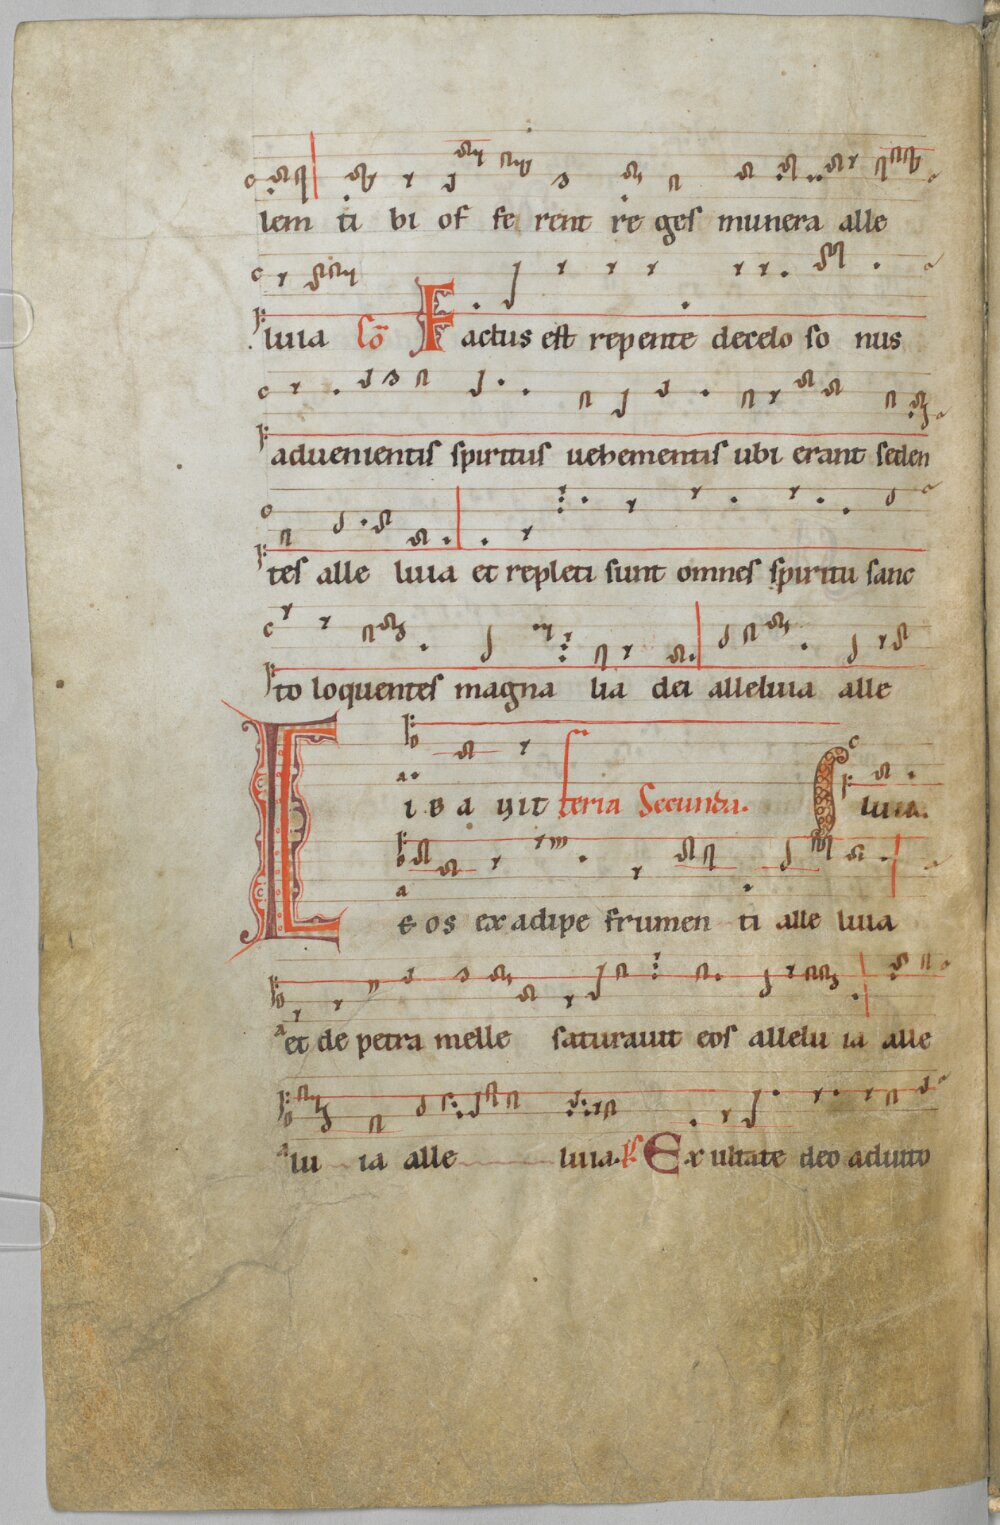 lem ti bi of fe rent re ges munera alle
luia Cō Factus est repente decelo so nus
aduenientis spiritus uehementis ubi erant seden
tes alle luia et repleti sunt omnes spiritu sanc
to loquentes magna lia dei alleluia alle
CIBAVIT feria Secunda. luia.
eos ex adipe frumen ti alle luia
et de petra melle saturauit eos allelu ia alle
lu ia alle luia. Ps Exultate deo adiuto